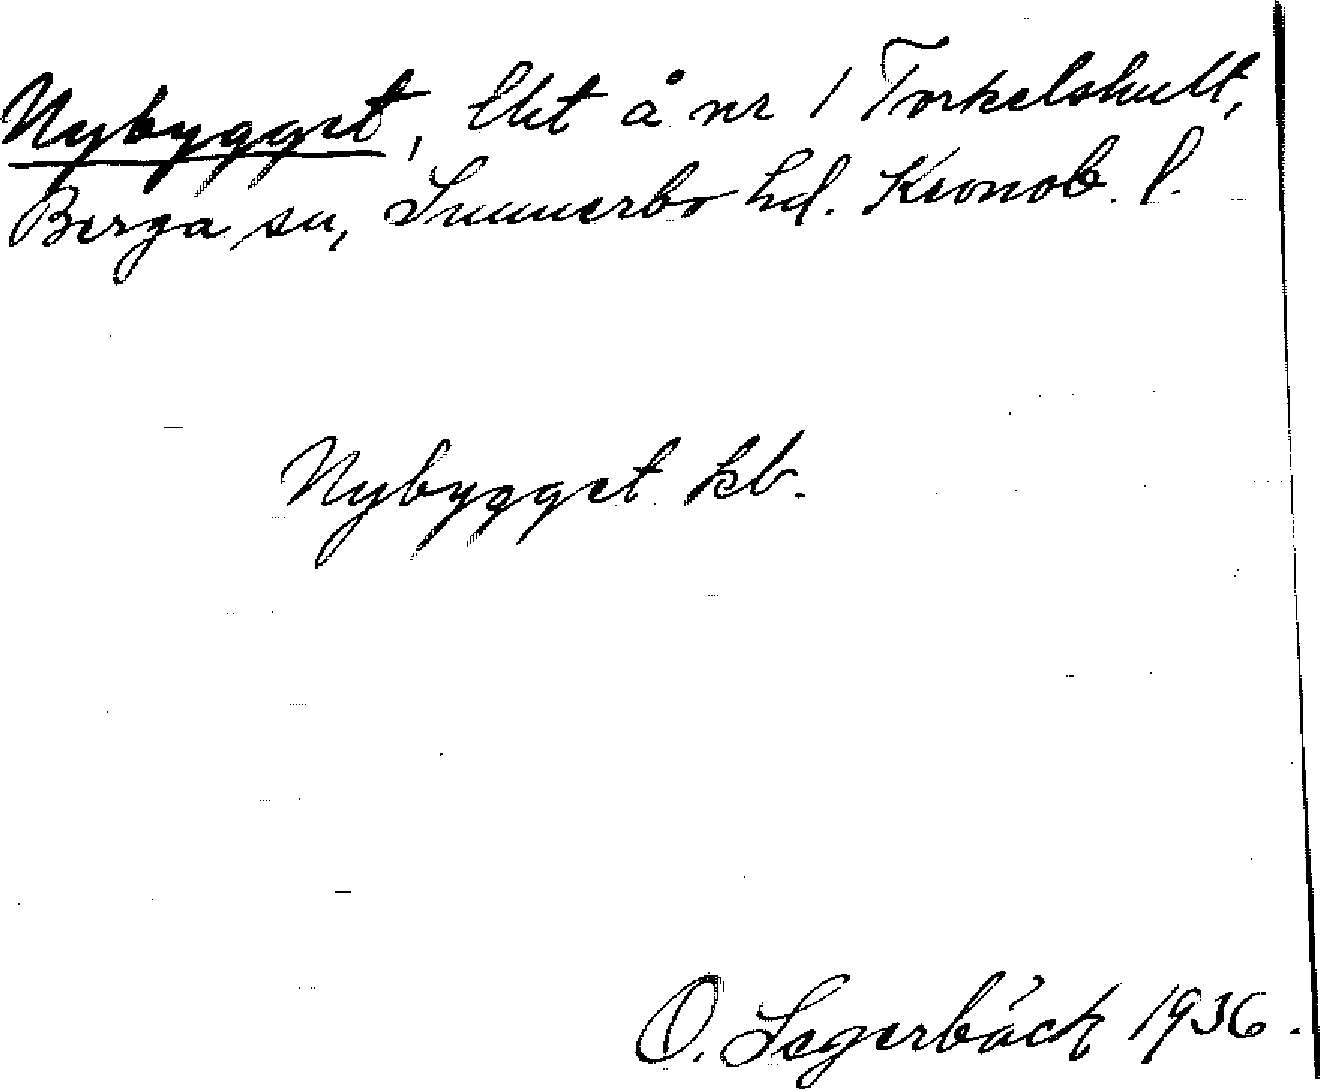 Nybygget, lht å nr 1 Torkelshult,
Berga sn, Sunnerbo hd. Kronob. l.
Nybygget kb.
O. Segerbäck 1936.